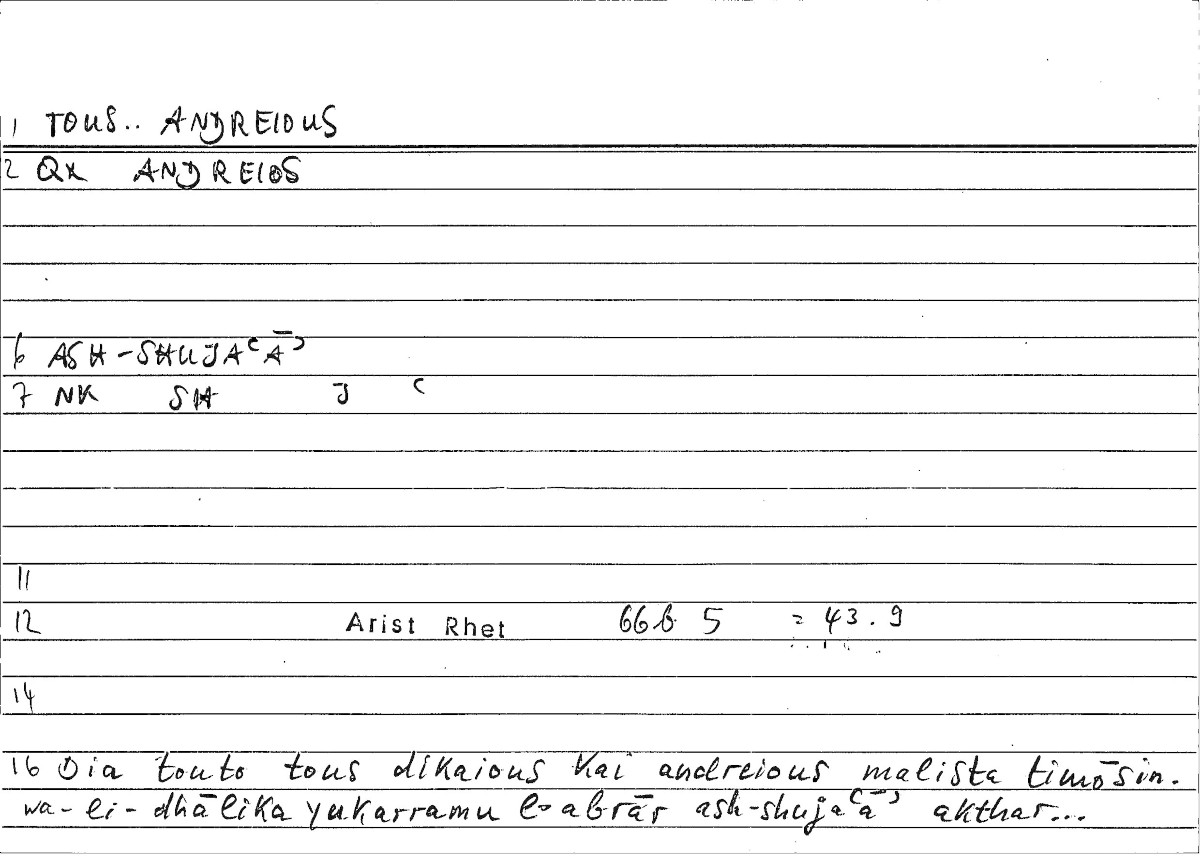 1 TOUS.. ANDREIOUS
2 QX ANDREIOS
6 ASH-SHUJAʿĀʾ
7 NK SH J ʿ
11
12 Arist Rhet 66b 5 = 43.9
14
16 Dia touto tous dikaious kai andreious malista timōsin.
wa-li-dhālika yukarramu l-abrār ash-shujaʿāʾ akthar...